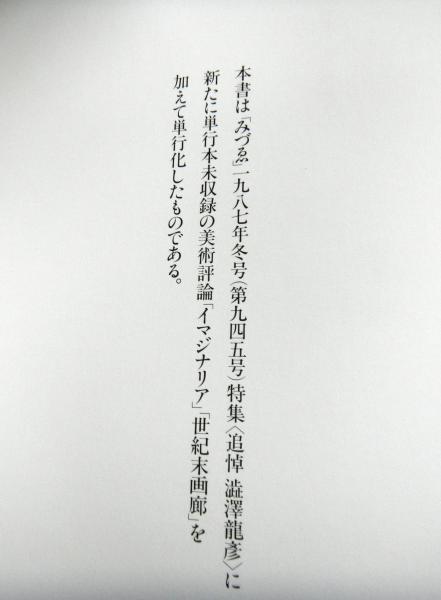 本書は「みづゑ」一九八七年冬号(第九四五号)特集〈追悼 澁澤龍彥〉に
新たに単行本未収録の美術評論「イマジナリア」「世紀末画廊」を
加えて単行化したものである。